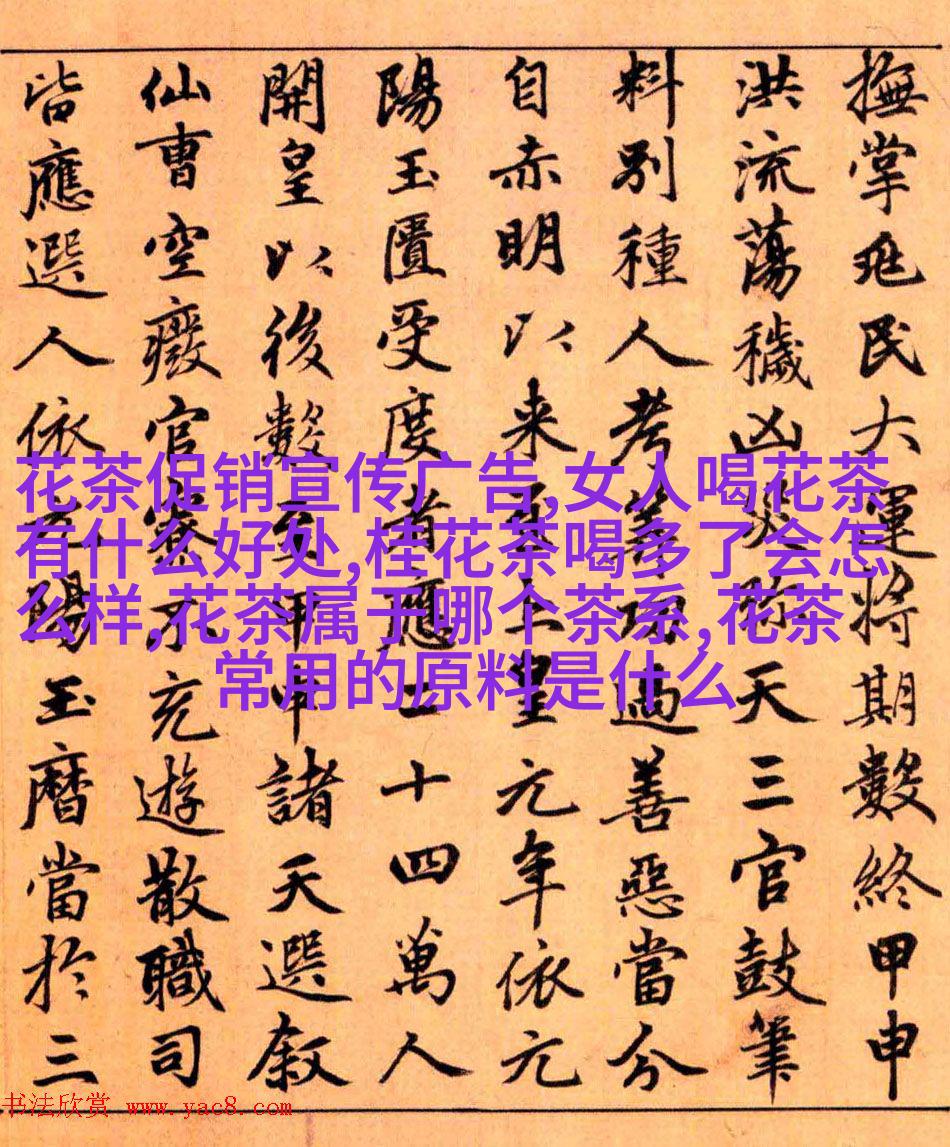 撫掌兆民大運將期數終甲申
洪流蕩穢凶災弥天三官鼓筆
料別種人考筭功過善惡當分
自赤明以来至上皇元年依元
陽玉匱受度者應二十四萬人
開皇以後數至甲申諸天選叙
仙曹空廢官寮不充遊散職司
皆應選人依元陽玉曆當於三
花茶促销宣传广告,女人喝花茶
有什么好处,桂花茶喝多了会怎
么样,花茶属于哪个茶系,花茶
常用的原料是什么
书法欣赏 www.yac8.com